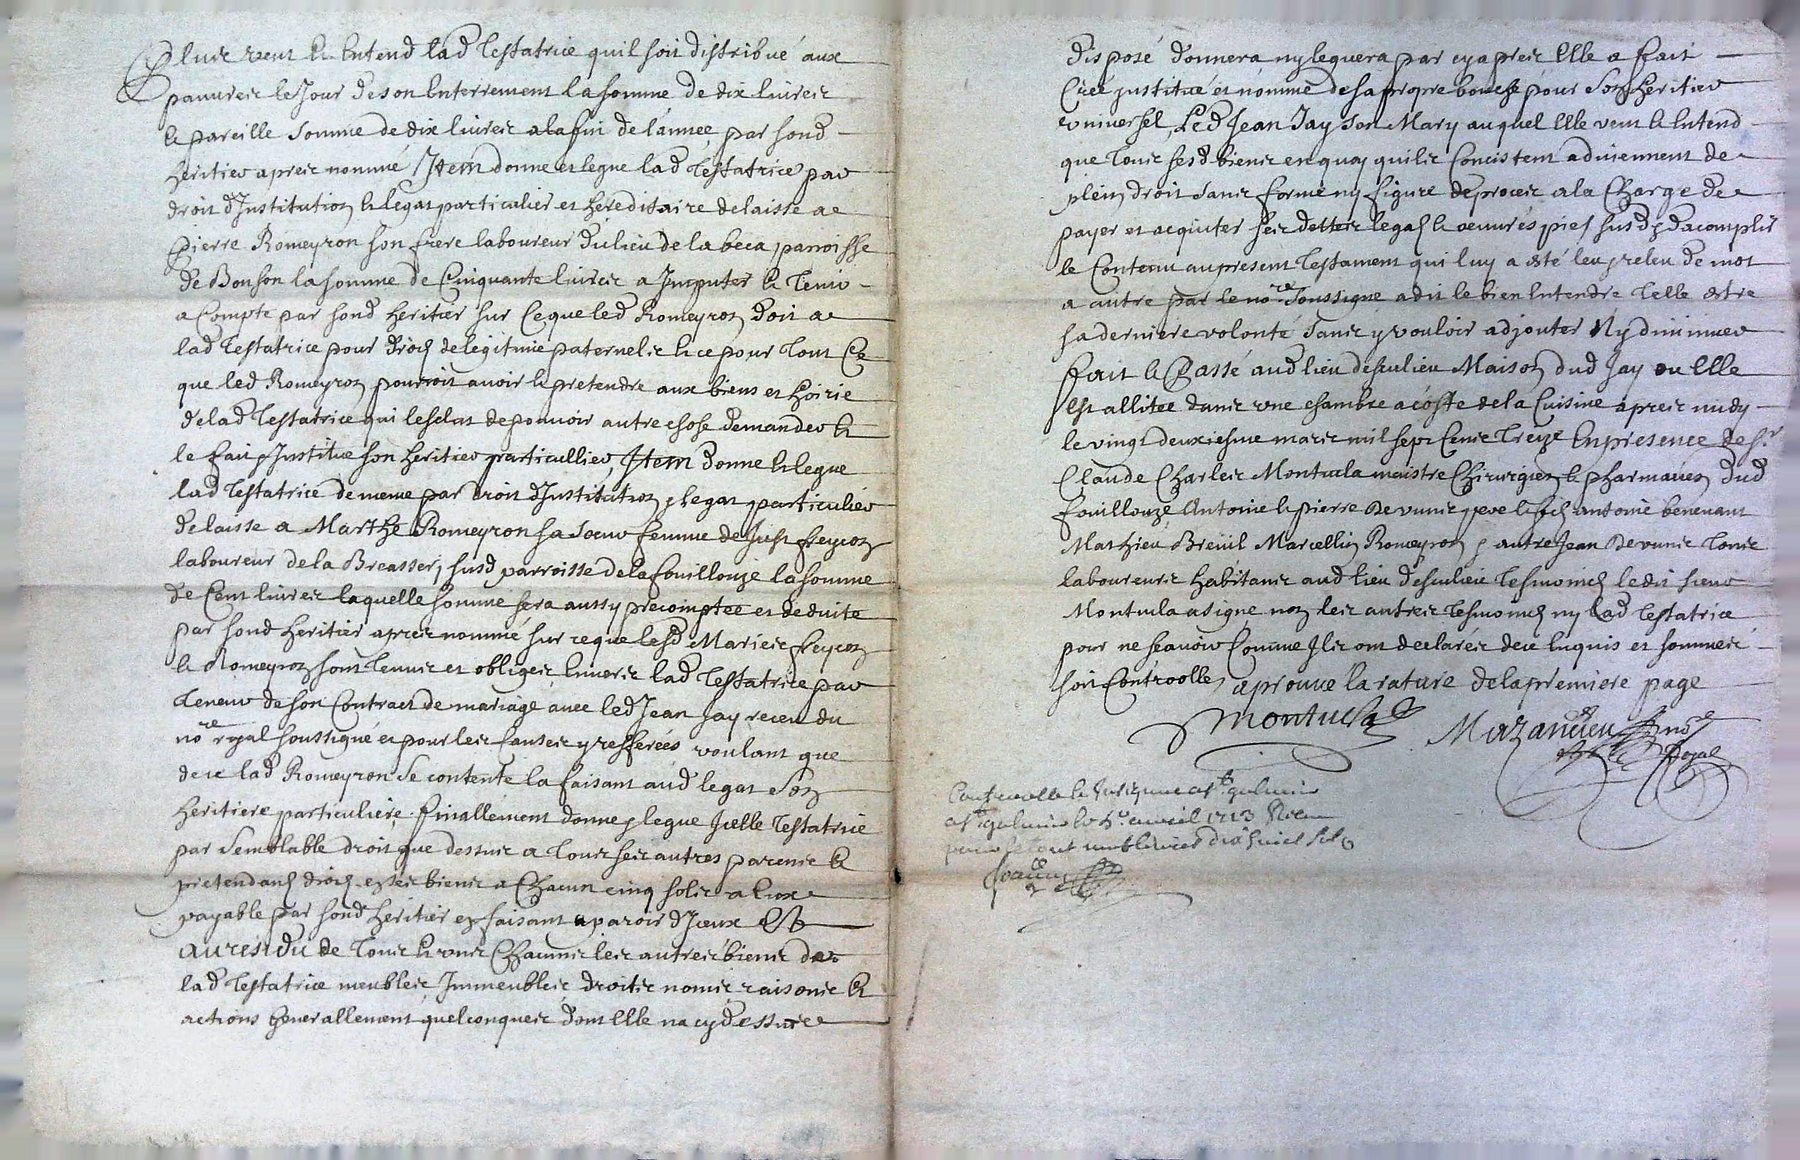 Plus veut et Entend lad Testatrice quil soit distribué aux
pauvres le Jour de son Enterrement la somme de dix livres
et pareille somme de dix livres a la fin de lannee par sond
heritier apres nommé Item donne et legue lad Testatrice par
droit d'Institution et legat particulier et hereditaire delaisse a
Pierre Romeyron son frere laboureur du lieu de la beca parroisse
de Bonson la somme de Cinquante livres a Imputer et Tenir
a Compte par sond heritier sur Ce que led Romeyron doit a
lad Testatrice pour droits de legitime paternelle et ce pour Tout Ce
que led Romeyron pourroit avoir et pretendre aux biens et hoirie
de lad Testatrice qui lesclut de pouvoir autre chose demander et
le fait Institue son heritier particullier, Item donne et legue
lad Testatrice de meme par droit d'Institution et legat particulier
delaisse a Marthe Romeyron sa soeur femme de Just freycon
laboureur de la Breasser, susd parroisse de la fouillouze la somme
de Cent livres laquelle somme sera aussy precomptee et deduite
par sond heritier apres nommé sur ce que lesd Maries freycon
et Romeyron sont Tenus et obliges Envers lad Testatrice par
Teneur de son Contract de mariage avec led Jean Jay receu du
nore royal soussigné et pour les causes y refferées voulant que
de ce lad Romeyron se contente la faisant aud legat son
heritiere particuliere. finallement donne et legue Icelle Testatrice
par semblable droit que dessus a Tous ses autres parens et
pretendants droits en ses biens a Chacun cinq sols a Eux
payable par sond heritier en faisant aparoir d'Iceux Et
au residu de Tous et uns Chacuns les autres biens de
lad Testatrice meubles Immeubles droits noms raisons et
actions generallement quelconques dont Elle na cy dessus
disposé donnera ny leguera par cy apres Elle a fait
Creé justitué et nommé de sa propre bouche pour son heritier
universel, Led Jean Jay son Mary auquel Elle veut et Entend
que Tous sesd biens en quoy quils Concistent adviennent de
plein droit sans forme ny figure de proces a la Charge de
payer et acquiter ses dettes legats et oeuvres pies susd et dacomplir
le Contenu au present Testament qui luy a esté leu et releu de mot
a autre par le nore soussigne a dit le bien Entendre Telle estre
sa derniere volonté sans y vouloir adjouter Ny diminuer
fait et Passé aud lieu desculieu Maison dud Jay ou Elle
Est allitee dans une chambre a coste de la Cuisine apres midy
le vingt deuxiesme mars mil sept Cens Treize En presence de sr
Claude Charles Montucla maistre Chirurgien et pharmatien dud
fouillouze Antoine et pierre Devunis pere et fils antoine benevant
Mathieu Breuil Marcellin Romeyron et autre Jean Devunis Tous
laboureurs habitans aud lieu desculieu Tesmoins ledit sieur
Montucla a signe non les autres Tesmoins ny lad Testatrice
pour ne sçavoir Comme Ils ont declarés de ce Enquis et sommes
soit Controolle, aprouve la rature de la premiere page
Montucla Mazancieu nore
Royal
Controolle et Insignué a St galmier
a St galmier le 5e avril 1713 Receu